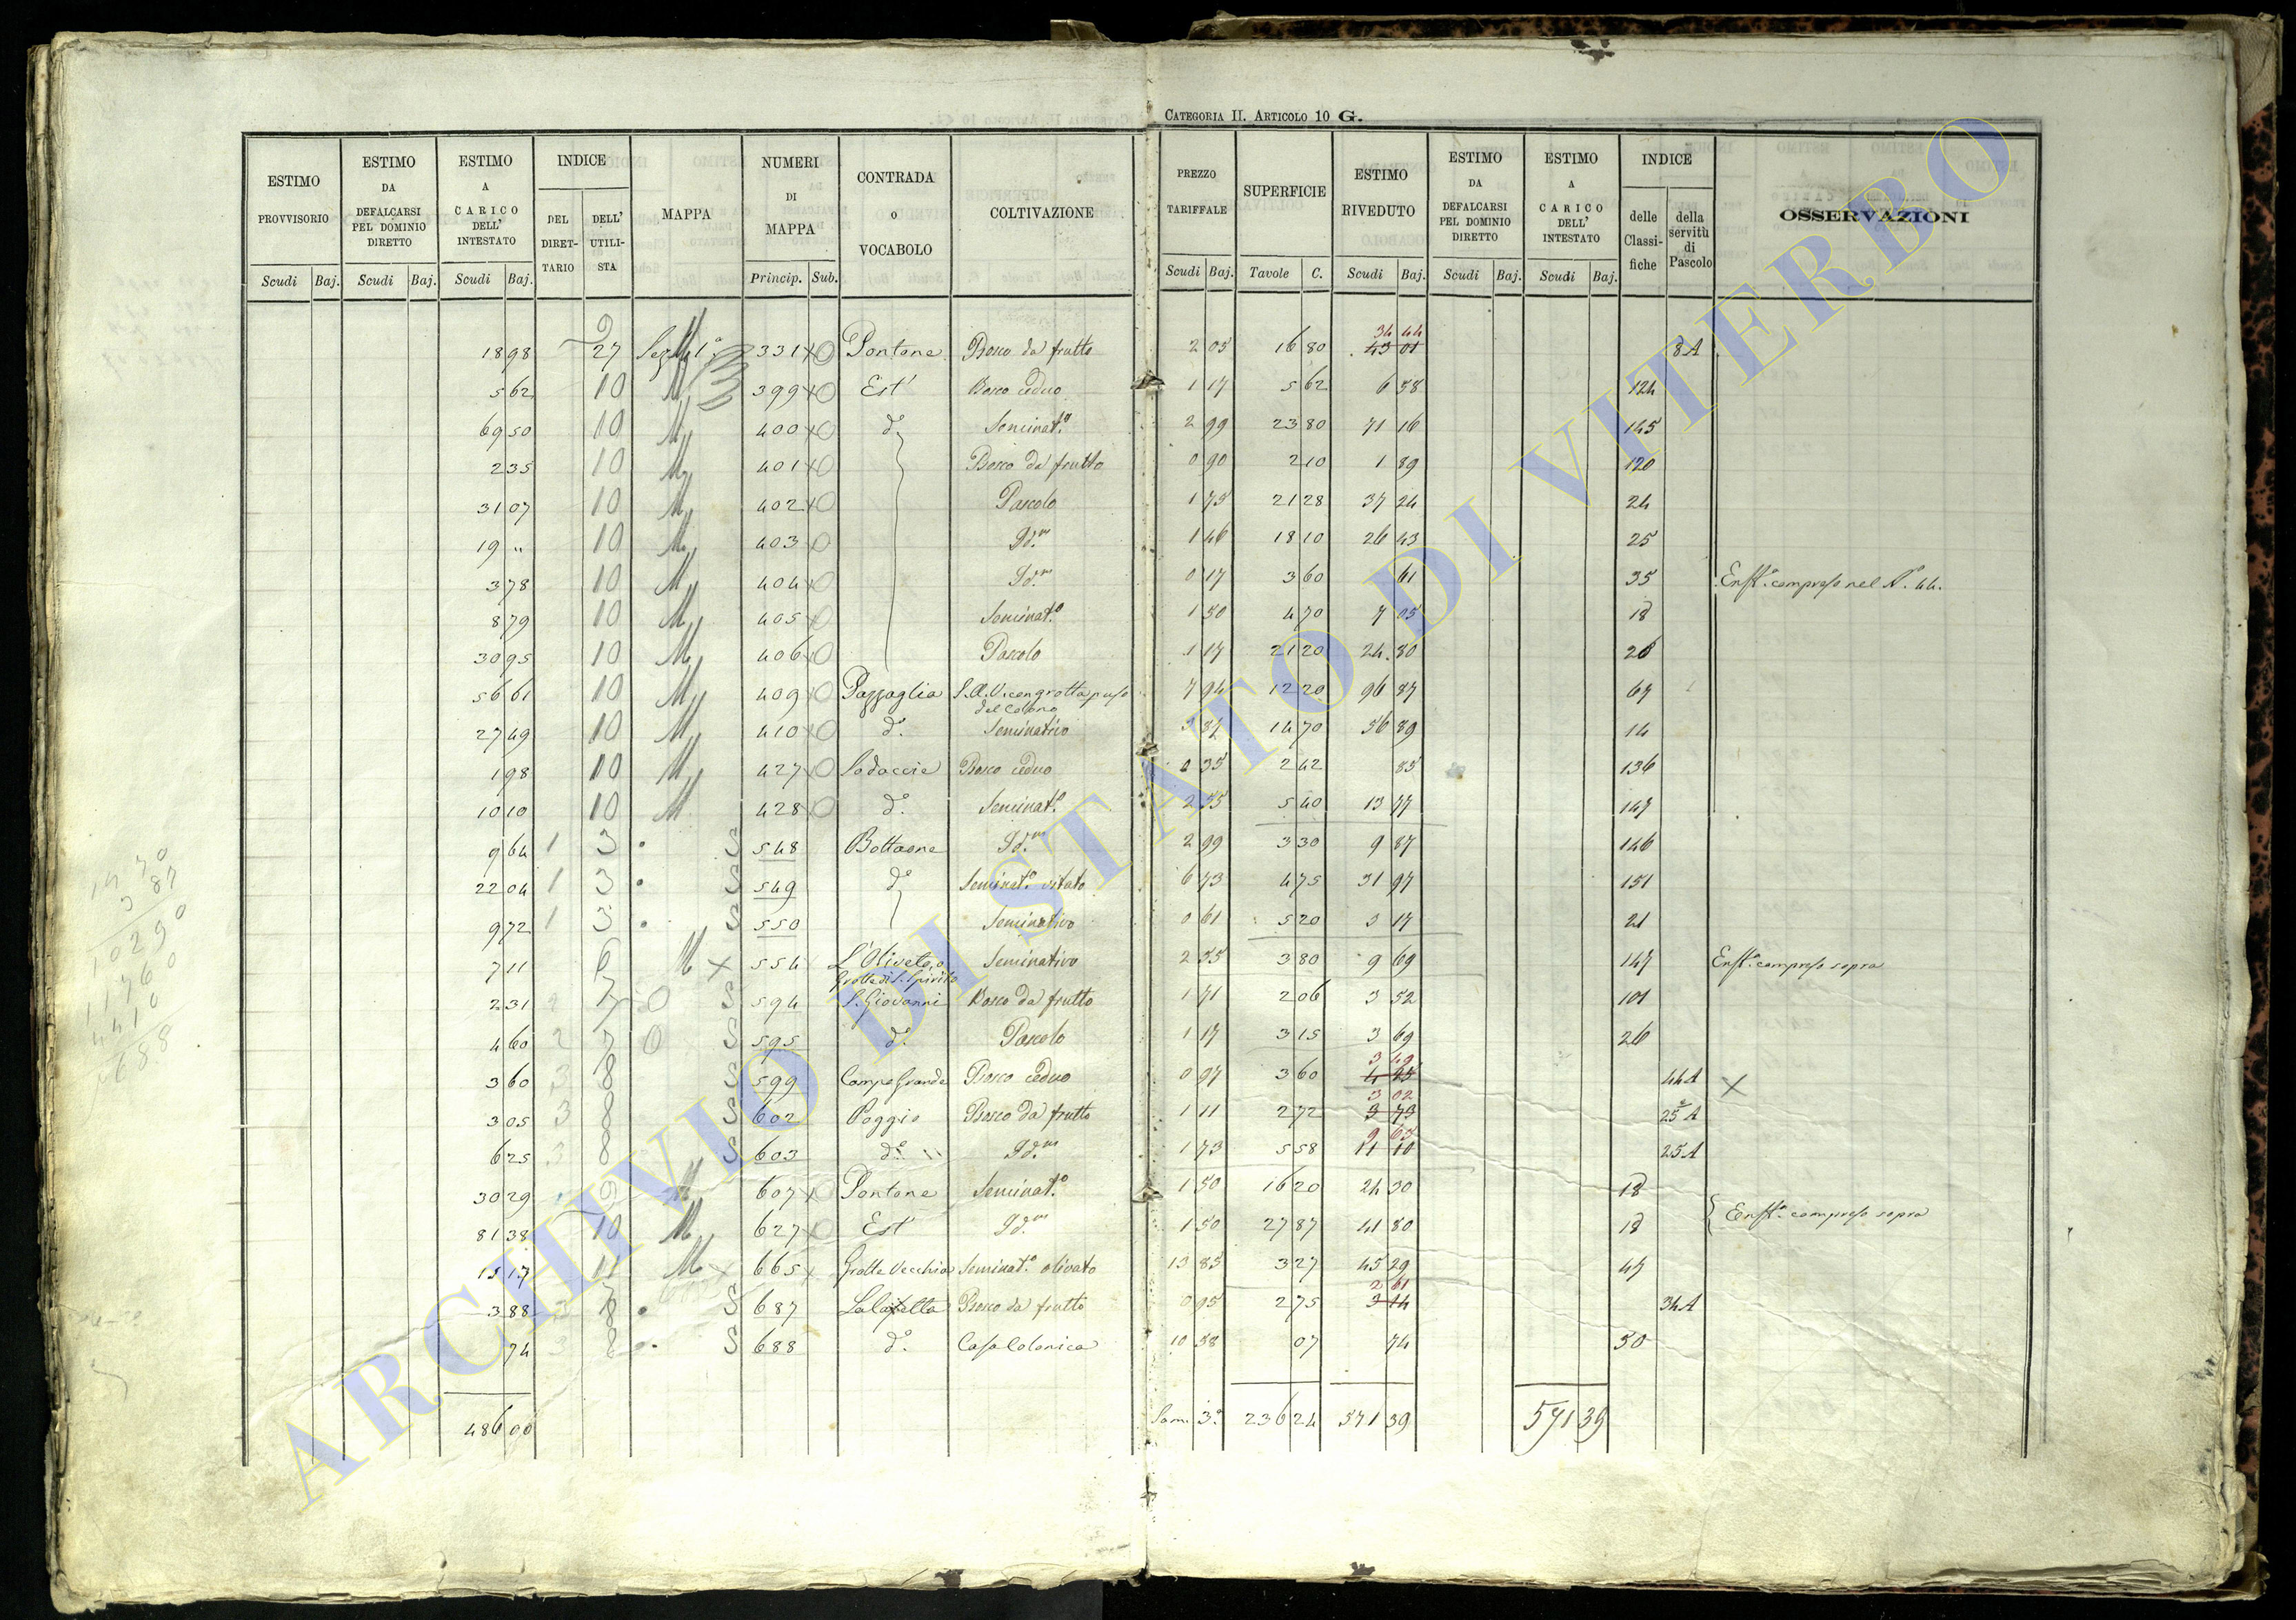 CATEGORIA II. ARTICOLO 10 G.
ESTIMO PROVVISORIO | ESTIMO DA DEFALCARSI PEL DOMINIO DIRETTO | ESTIMO A CARICO DELL' INTESTATO | INDICE DEL DIRETTARIO | DELL' UTILISTA | MAPPA | NUMERI DI MAPPA | CONTRADA O VOCABOLO | COLTIVAZIONE | PREZZO TARIFFALE | SUPERFICIE | ESTIMO RIVEDUTO | ESTIMO DA DEFALCARSI PEL DOMINIO DIRETTO | ESTIMO A CARICO DELL' INTESTATO | INDICE delle Classifiche | della servitù di Pascolo | OSSERVAZIONI
Scudi Baj. | Scudi Baj. | Scudi Baj. | Princip. Sub. | Scudi Baj. | Tavole C. | Scudi Baj. | Scudi Baj. | Scudi Baj.
18 98 | 27 | 331 | Pontone | Bosco da frutto | 2 05 | 16 80 | 34 44 | 43 01 | 8A
5 62 | 10 | M | 399 | Est' | Bosco ceduo | 1 17 | 5 62 | 6 58 | 124
69 50 | 10 | M | 400 | d.° | Seminat.° | 2 99 | 23 80 | 71 16 | 145
2 35 | 10 | M | 401 | Bosco da frutto | 0 90 | 2 10 | 1 89 | 120
31 07 | 10 | M | 402 | Pascolo | 1 75 | 21 28 | 37 24 | 24
19 " | 10 | M | 403 | Id.m | 1 46 | 18 10 | 26 43 | 25
3 78 | 10 | M | 404 | Id.m | 0 17 | 3 60 | 61 | 35 | Enft.a compreso nel N.° 44.
8 79 | 10 | M | 405 | Seminat.° | 1 50 | 4 70 | 7 05 | 18
30 95 | 10 | M | 406 | Pascolo | 1 17 | 21 20 | 24 80 | 26
56 61 | 10 | M | 409 | Pazzaglia | S.A.V. con grotta p uso del Colono | 7 94 | 12 20 | 96 87 | 67
27 49 | 10 | M | 410 | d.° | Seminativo | 3 87 | 14 70 | 56 89 | 14
1 98 | 10 | M | 427 | Sodaccie | Bosco ceduo | 0 35 | 2 42 | 85 | 136
10 10 | 10 | M | 428 | d.° | Seminat.° | 2 55 | 5 40 | 13 77 | 147
9 64 | 1 | 3 | S | 548 | Bottaone | Id.m | 2 99 | 3 30 | 9 87 | 146
22 04 | 1 | 3 | S | 549 | d.° | Seminat.° vitato | 6 73 | 4 75 | 31 97 | 151
9 72 | 1 | 3 | S | 550 | Seminativo | 0 61 | 5 20 | 3 17 | 21
7 11 | 6 | M | 554 | L'Oliveto, o Grotte di S. Spirito | Seminativo | 2 55 | 3 80 | 9 69 | 147 | Enft.a compreso sopra
2 31 | 2 | 7 | S | 594 | S. Giovanni | Bosco da frutto | 1 71 | 2 06 | 3 52 | 101
4 60 | 2 | 7 | S | 595 | d.° | Pascolo | 1 17 | 3 15 | 3 69 | 26
3 60 | 3 | 8 | S | 599 | Campo Grande | Bosco ceduo | 0 97 | 3 60 | 3 49 | 44A
3 05 | 3 | 8 | S | 602 | Poggio | Bosco da frutto | 1 11 | 2 72 | 3 02 | 3 73 | 25 A
6 25 | 3 | 8 | S | 603 | d.° " | Id.m | 1 73 | 5 58 | 9 65 | 11 10 | 25A
30 29 | 9 | M | 607 | Pontone | Seminat.° | 1 50 | 16 20 | 24 30 | 18
81 38 | 10 | M | 627 | Est' | Id.m | 1 50 | 27 87 | 41 80 | 18 | Enft.a compreso sopra
15 17 | 11 | M | 665 | Grotte Vecchia | Seminat.° olivato | 13 85 | 3 27 | 45 29 | 47
3 88 | 3 | 8 | S | 687 | Bosco da frutto | 0 95 | 2 75 | 2 61 | 3 14 | 34A
74 | 3 | 8 | S | 688 | d.° | Casa Colonica | 10 58 | 07 | 74 | 50
486 00 | Som. 3.a | 236 24 | 571 39 | 571 39
ARCHIVIO DI STATO DI VITERBO